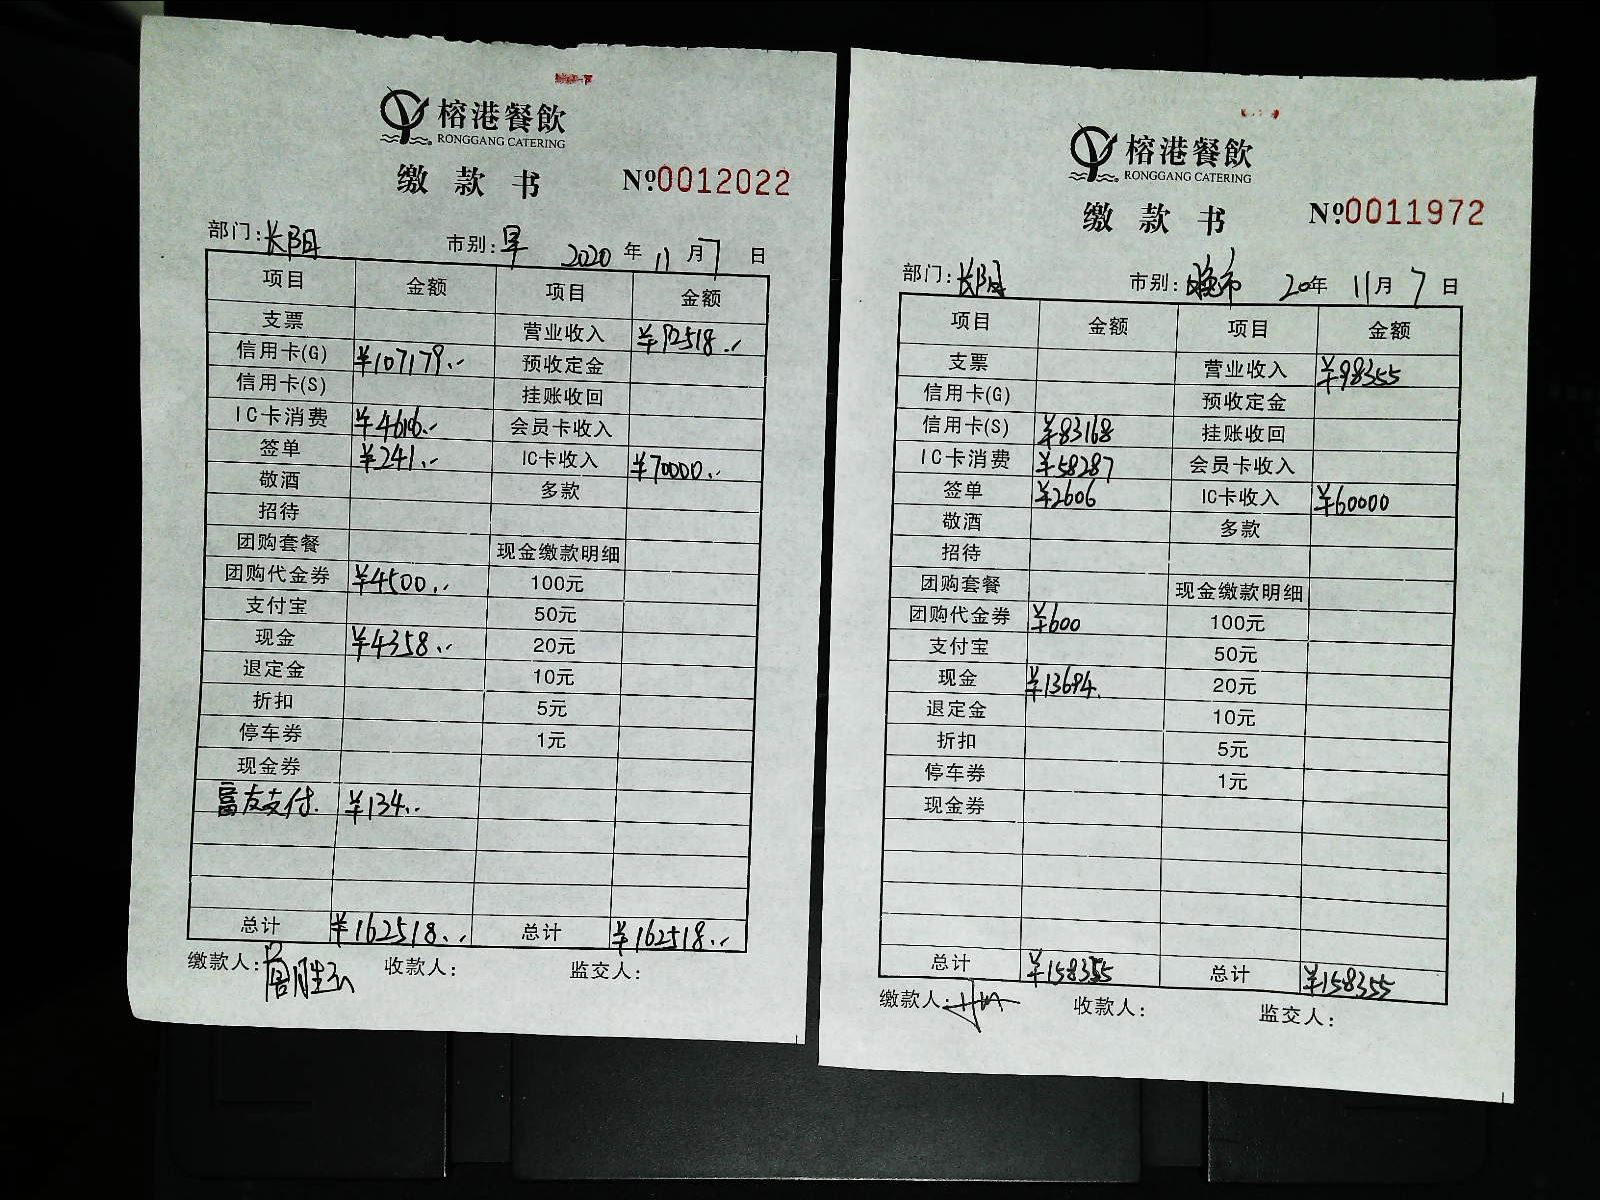 榕港餐飲
RONGGANG CATERING
缴款书 №0012022
部门:长阳 市别:早 2020年11月7日
项目 金额 项目 金额
支票 营业收入 ¥92518.--
信用卡(G) ¥107179.-- 预收定金
信用卡(S) 挂账收回
IC卡消费 ¥46106.-- 会员卡收入
签单 ¥241.-- IC卡收入 ¥70000.--
敬酒 多款
招待
团购套餐 现金缴款明细
团购代金券 ¥4500.-- 100元
支付宝 50元
现金 ¥4358.-- 20元
退定金 10元
折扣 5元
停车券 1元
现金券
富友支付. ¥134.--
总计 ¥162518.-- 总计 ¥162518.--
缴款人: 收款人: 监交人:
榕港餐飲
RONGGANG CATERING
缴款书 №0011972
部门:长阳 市别:晚市 20年11月7日
项目 金额 项目 金额
支票 营业收入 ¥98355
信用卡(G) 预收定金
信用卡(S) ¥83168 挂账收回
IC卡消费 ¥58287 会员卡收入
签单 ¥2606 IC卡收入 ¥60000
敬酒 多款
招待
团购套餐 现金缴款明细
团购代金券 ¥600 100元
支付宝 50元
现金 ¥13694. 20元
退定金 10元
折扣 5元
停车券 1元
现金券
总计 ¥158355 总计 ¥158355
缴款人: 收款人: 监交人: